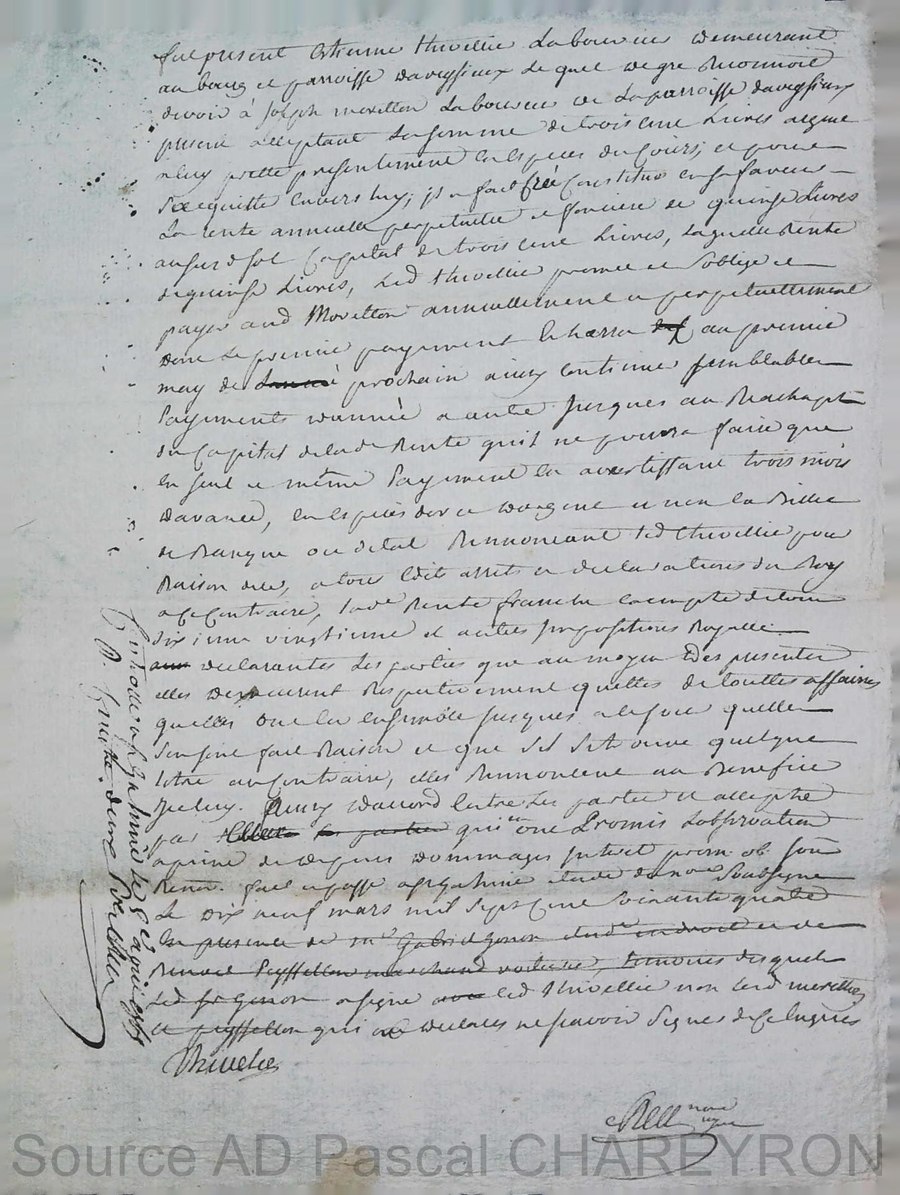 fut present Estienne thivellie Laboureur demeurant
au bourg et parroisse daveyssieux Lequel de gre Reconnoit
devoir à Joseph morellon Laboureur de La parroisse daveyssieux
present acceptant La somme de trois cent Livres argent
a luy pretté presentement en Especes du Cours, et pour
Sacquitte envers luy, jl a fait crée Constitue en sa faveur
La rente annuelle perpetuelle et fonciere de quinze Livres
au sur et sol Capital de trois cent Livres, Laquelle Rente
de quinze Livres, Led thivellie promet et Soblige de
payer aud Morellon annuellement a perpetuellement
dont Le premier payement Echerra au premier
may de prochain ainsy continuer semblables
Payements dannée a autre jusques au Reachapt
du Capital de lade Rente quil ne pourra faire que
en seul et même Payement en avertissant trois mois
davance, en Especes dor et dargent et non en Billet
de Banque ou detat Rennonceant led thivellie pour
Raison de ce, a tous Edits arrets et declarations du Roy
a ce Contraire, lade Rente franche Exempte de tous
dixieme vingtieme et autres jmpositions Royalle
declarantes Les parties que au moyen des presentes
elles demeurent Respectivement quittes de touttes affaires
quelles ont eu ensemble jusques a ce jour quelles
sen font fait Raison et que sil se trouve quelque
titre au Contraire, elles Rennoncent au Benefice
diceluy. Ainsy daccord Entre Les parties et accepté
par qui ont Promis Lobservation
a peine de tous depens dommages jnteret prom. ob. soum.
Renon. fait et passé a etude du nore Soussigne
Le dix neuf mars mil sept cent soixante quatre
En presence de mre Gabriel Genon etudt en droit et de
Benoit Peyssellon marchand voiturier, temoins desquels
Led sr Genon a signe avec led thivellie non led morellon
et peyssellon qui ont declarés ne scavoir signes de ce Enquis
Thivelies
nore
Controle le
R. trente deux sols
Source AD Pascal CHAREYRON